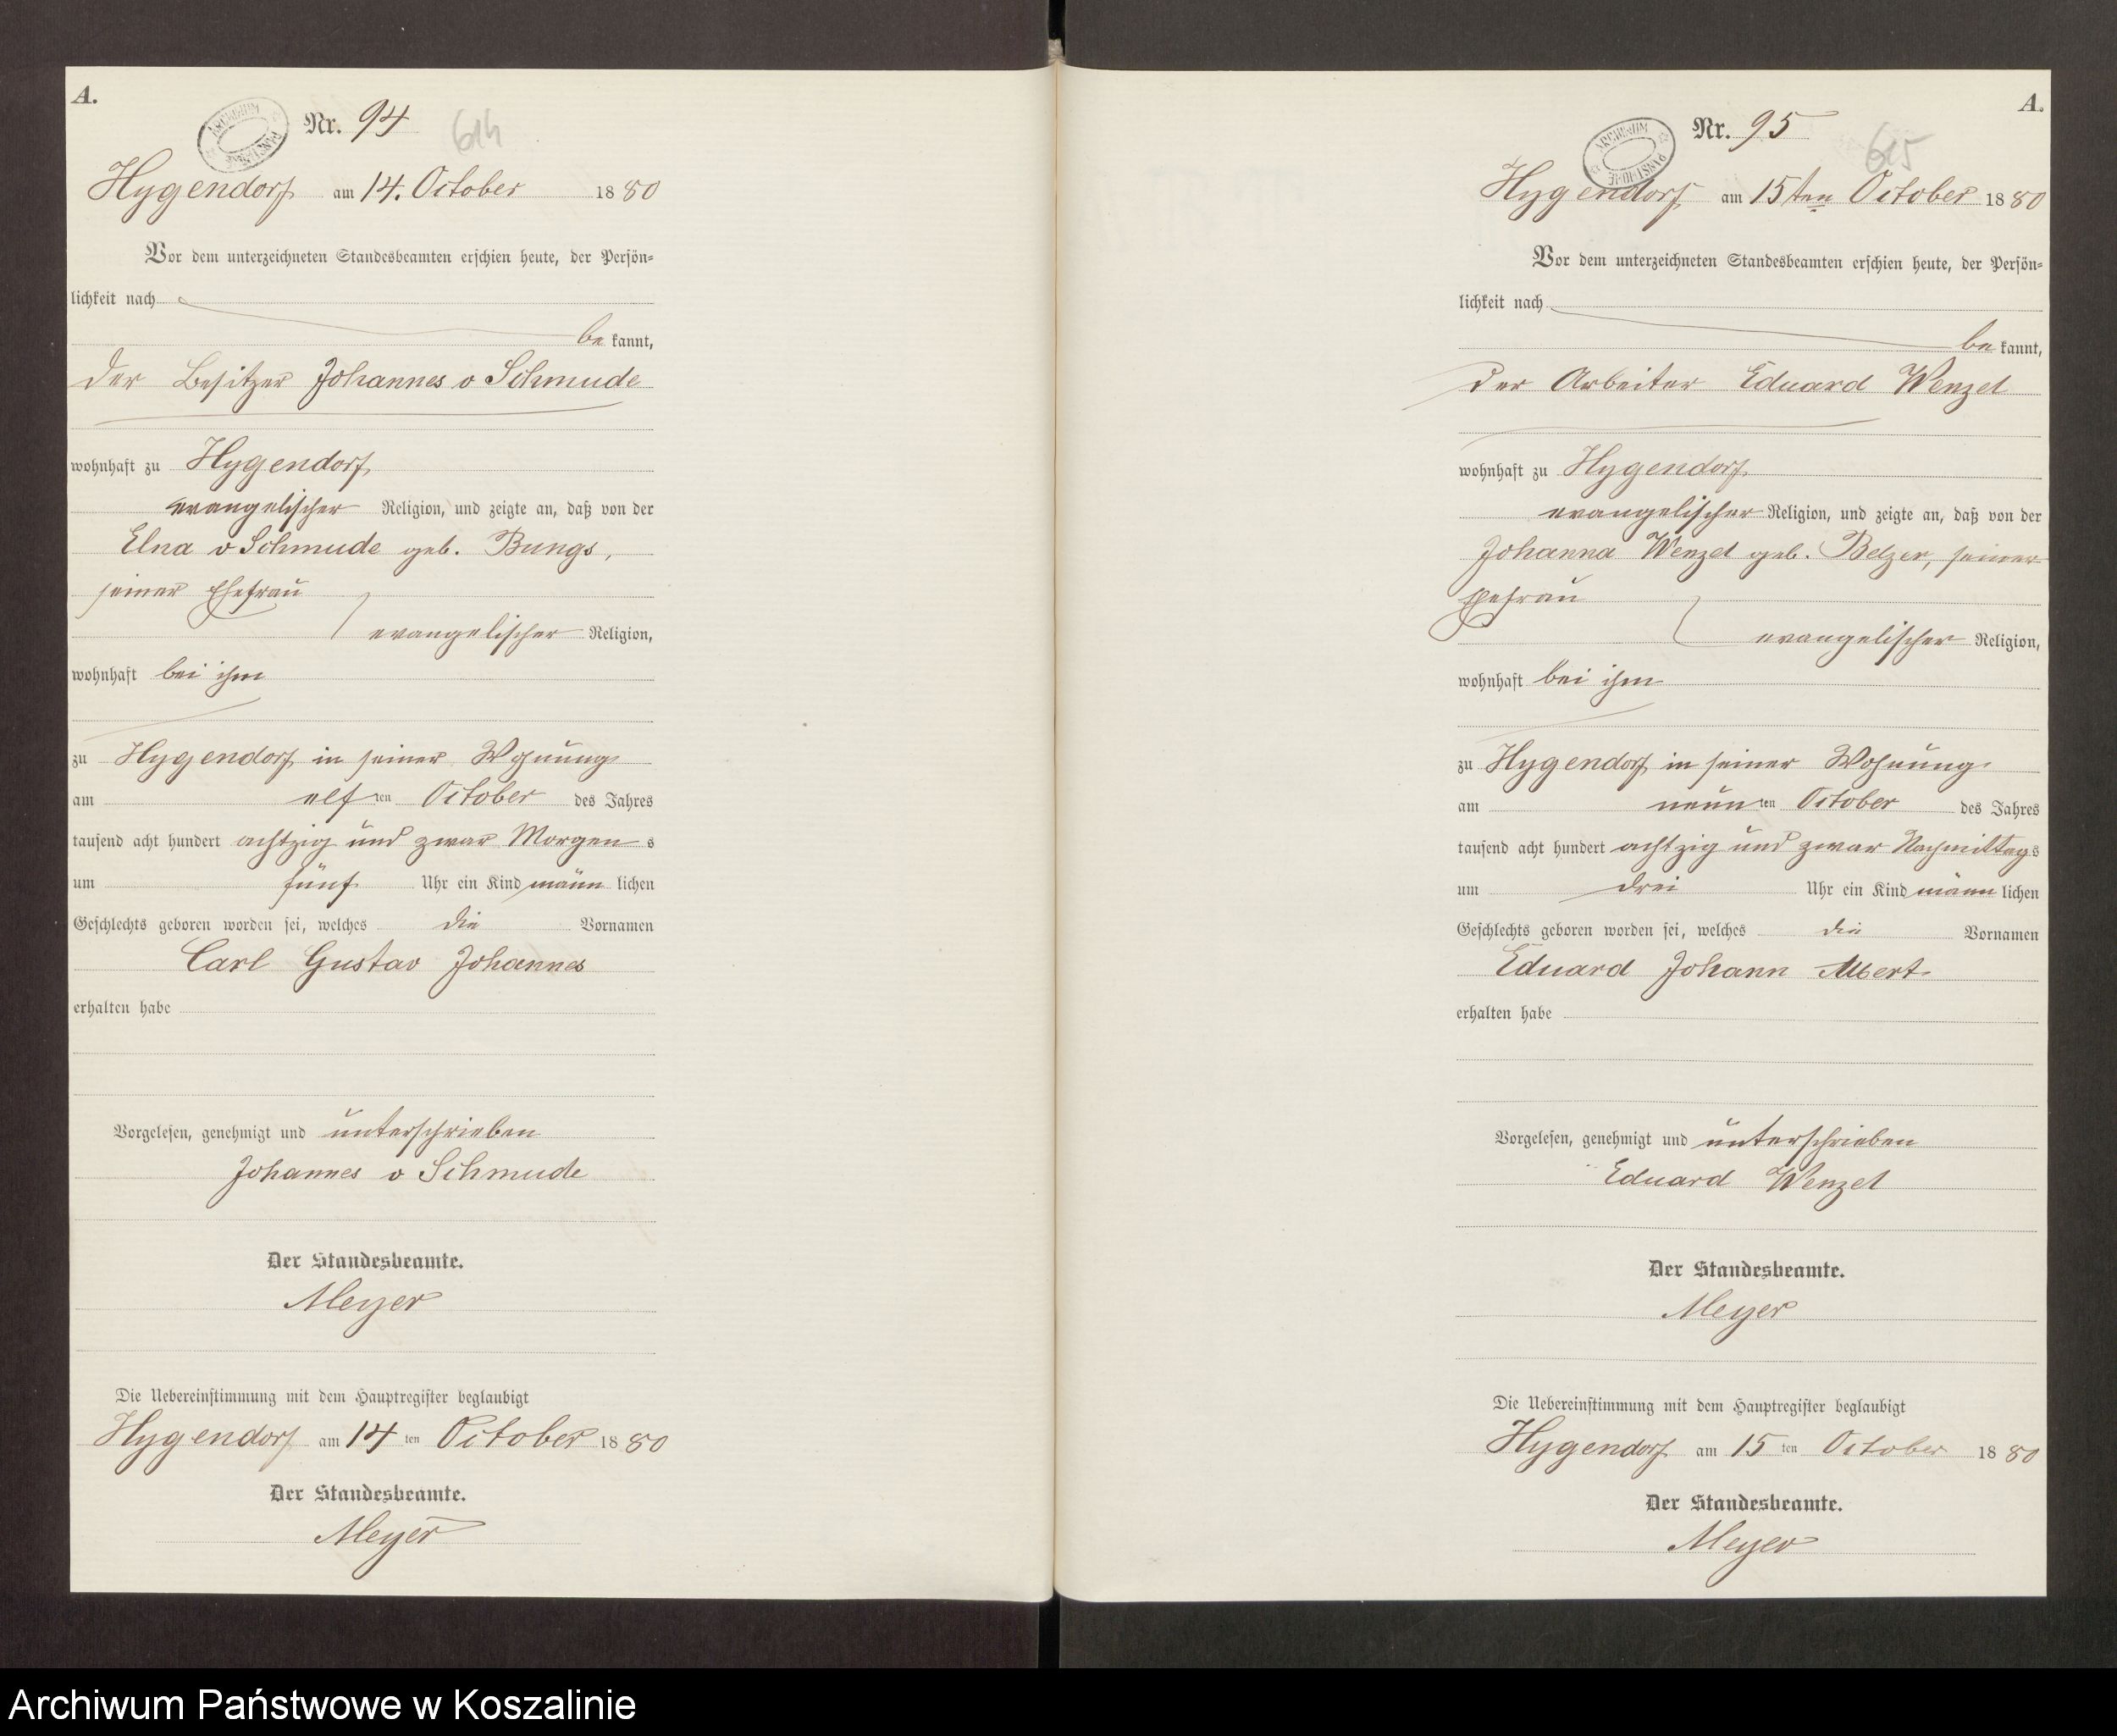 A.
Nr. 94
614
ARCHIWUM PAŃSTWOWE
Hygendorf am 14. October 1880
Vor dem unterzeichneten Standesbeamten erschien heute, der Persön-
lichkeit nach
be kannt,
der Besitzer Johannes v Schmude
wohnhaft zu Hygendorf
evangelischer Religion, und zeigte an, daß von der
Elna v Schmude geb. Bungs,
seiner Ehefrau
evangelischer Religion,
wohnhaft bei ihm
zu Hygendorf in seiner Wohnung
am elf ten October des Jahres
tausend acht hundert achtzig und zwar Morgen s
um fünf Uhr ein Kind männ lichen
Geschlechts geboren worden sei, welches die Vornamen
Carl Gustav Johannes
erhalten habe
Vorgelesen, genehmigt und unterschrieben
Johannes v Schmude
Der Standesbeamte.
Meyer
Die Uebereinstimmung mit dem Hauptregister beglaubigt
Hygendorf am 14 ten October 1880
Der Standesbeamte.
Meyer
A.
Nr. 95
615
ARCHIWUM PAŃSTWOWE
Hygendorf am 15ten October 1880
Vor dem unterzeichneten Standesbeamten erschien heute, der Persön-
lichkeit nach
be kannt,
der Arbeiter Eduard Wenzel
wohnhaft zu Hygendorf
evangelischer Religion, und zeigte an, daß von der
Johanna Wenzel geb. Belzer, seiner
Ehefrau
evangelischer Religion,
wohnhaft bei ihm
zu Hygendorf in seiner Wohnung
am neun ten October des Jahres
tausend acht hundert achtzig und zwar Nachmittags
um drei Uhr ein Kind männ lichen
Geschlechts geboren worden sei, welches die Vornamen
Eduard Johann Albert
erhalten habe
Vorgelesen, genehmigt und unterschrieben
Eduard Wenzel
Der Standesbeamte.
Meyer
Die Uebereinstimmung mit dem Hauptregister beglaubigt
Hygendorf am 15 ten October 1880
Der Standesbeamte.
Meyer
Archiwum Państwowe w Koszalinie